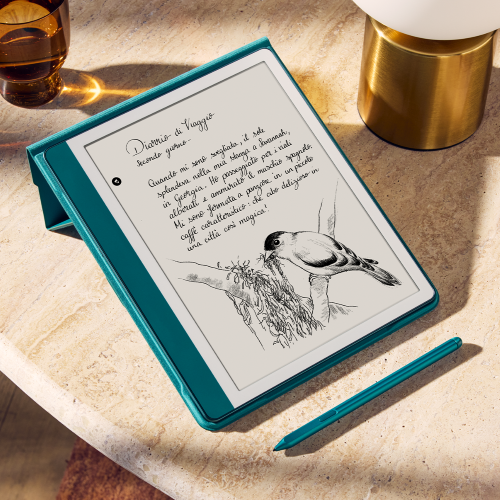 Diario di Viaggio
secondo giorno
Quando mi sono svegliata, il sole
splendeva nella mia stanza a Savannah,
in Georgia. Ho passeggiato per i viali
alberati e ammirato il muschio spagnolo.
Mi sono fermata a pranzare in un piccolo
caffè caratteristico: che cibo delizioso in
una città così magica!